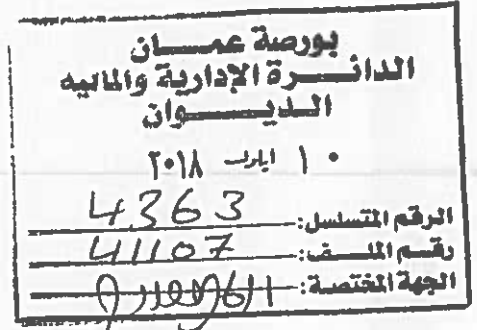 بورصة عمسان
الدائرة الإدارية والماليه
الديوان
١٠ ايلول ٢٠١٨
الرقم المتسلسل: 4363
رقم الملف: 41107
الجهة المختصة: